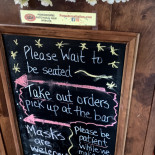 Please Wait to
be seated
Take out orders
pick up at the bar
Masks
are
welcome
Please
be
patient
while
we